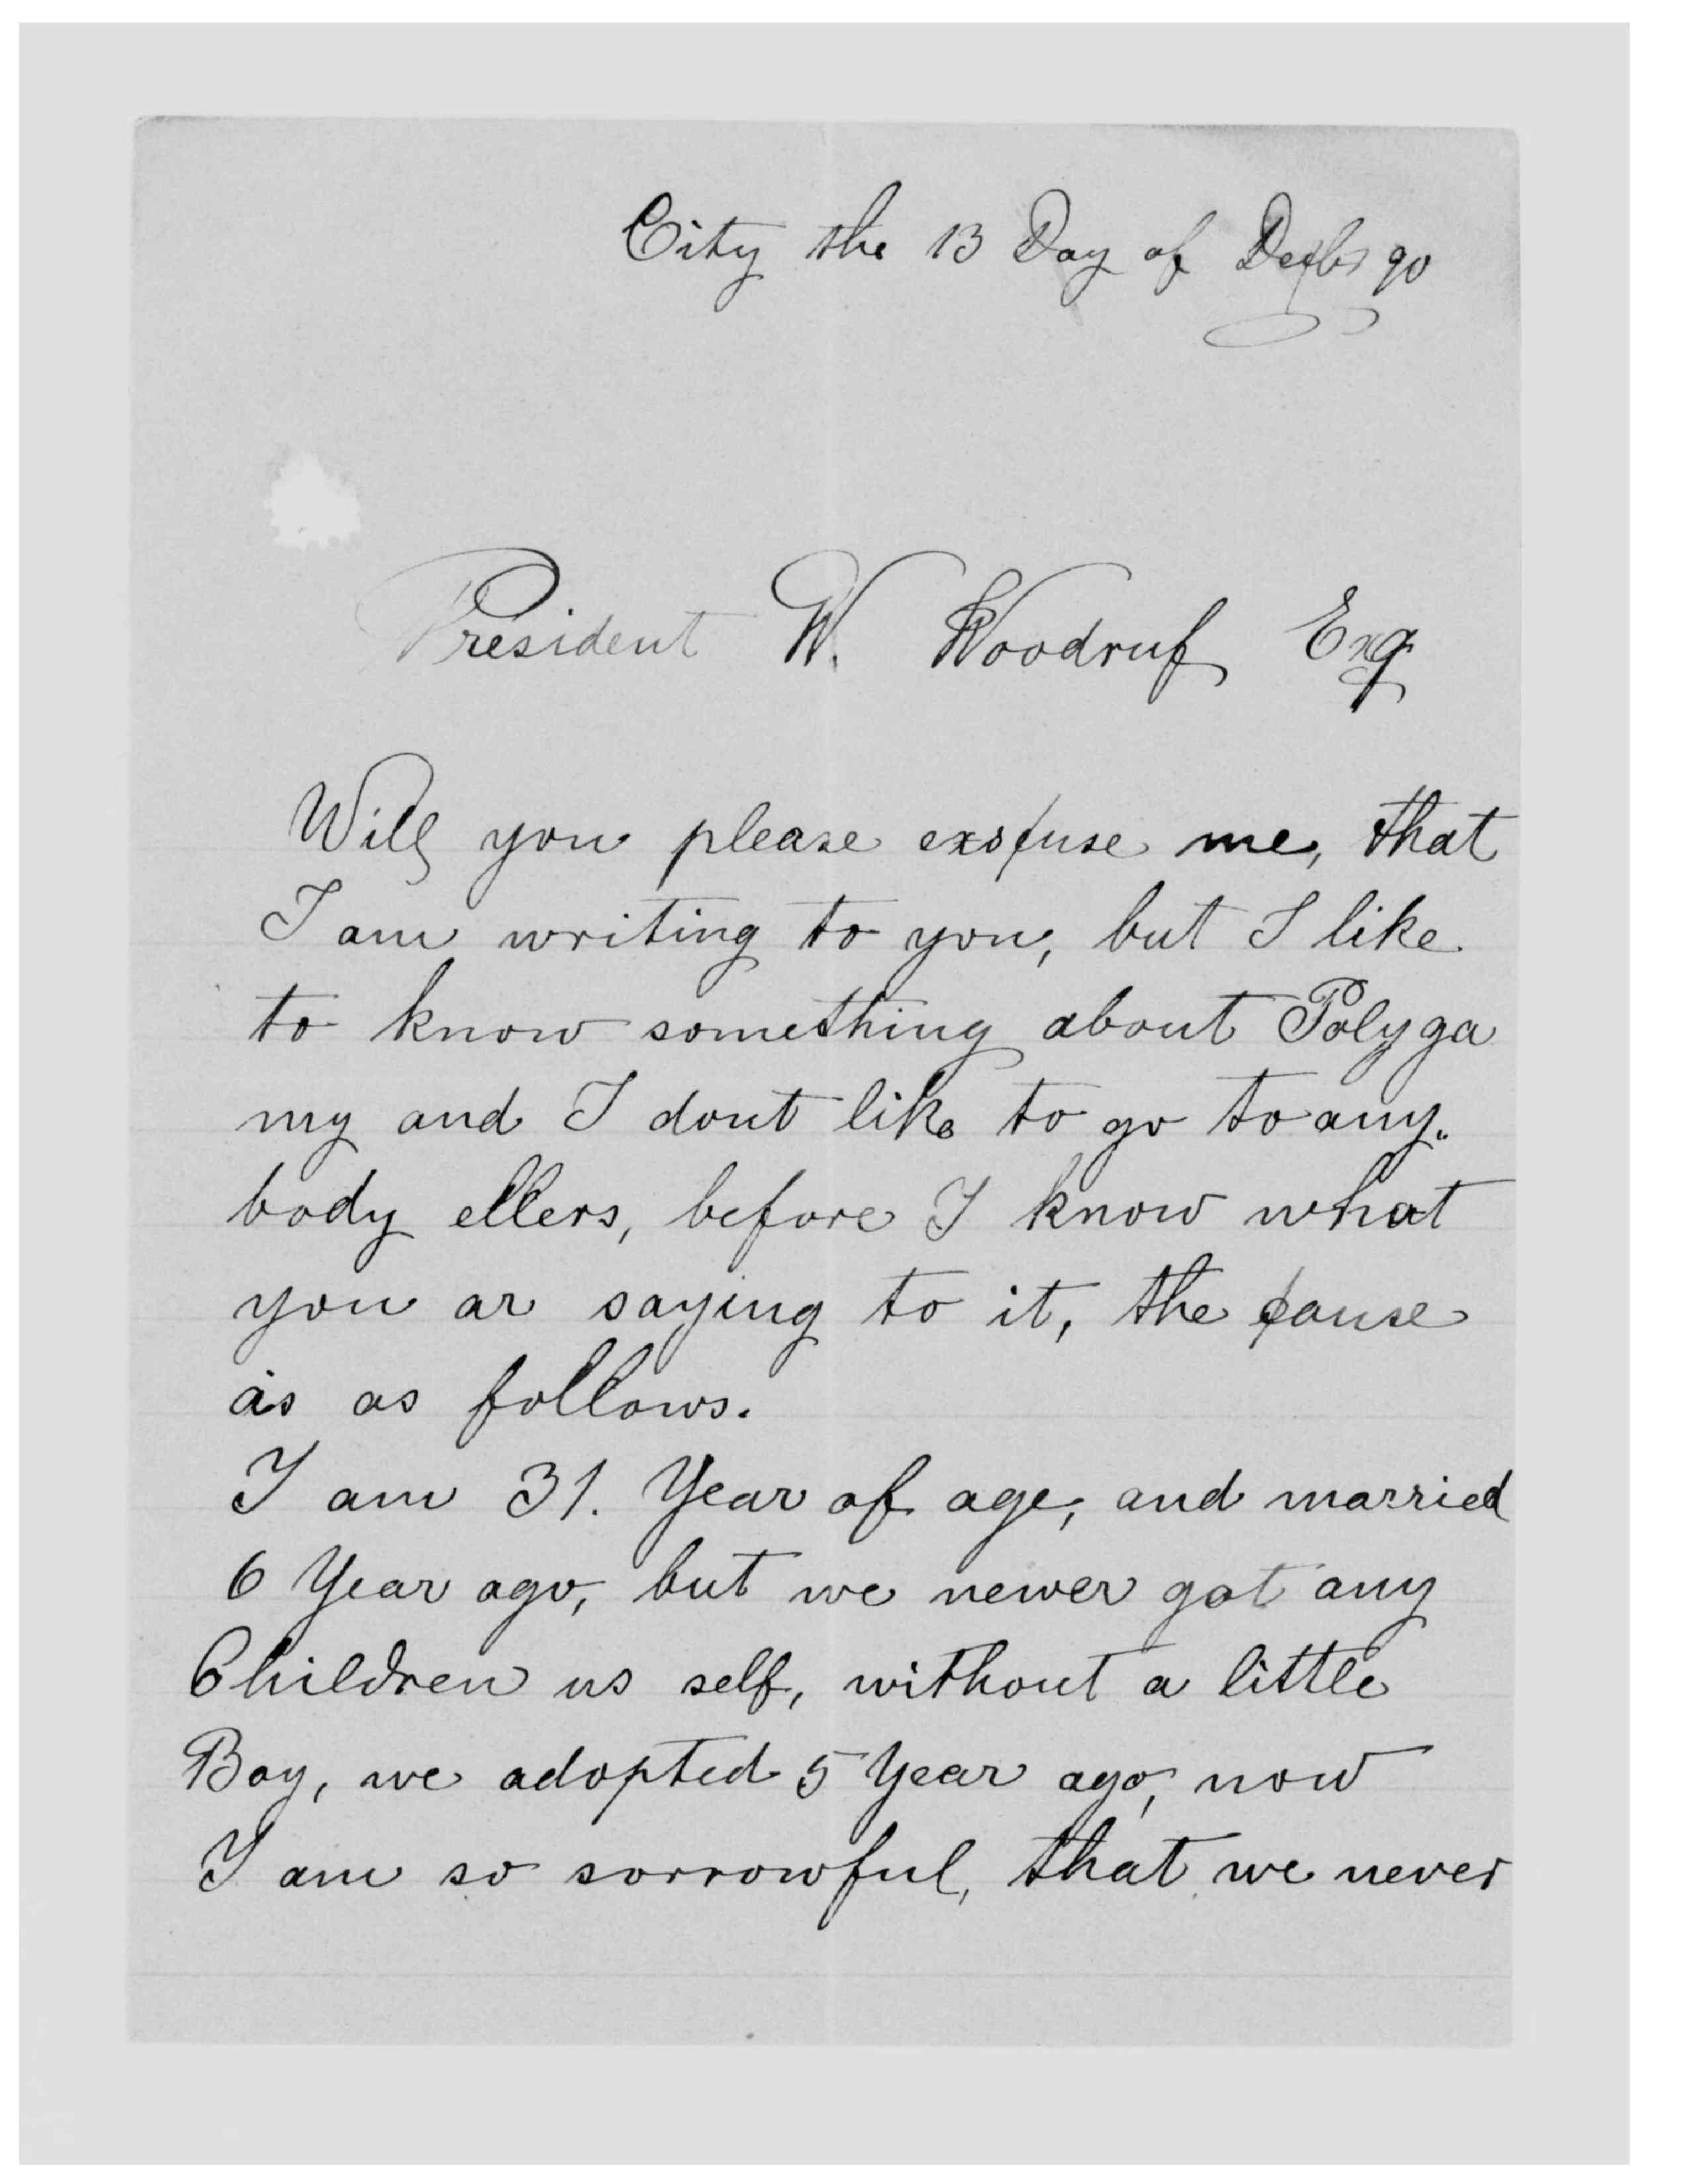 City the 13 Day of Decbr 90
President W. Woodruf Esq
Will you please excuse me, that
I am writing to you, but I like
to know something about Polyga
my and I dont like to go to any-
body ellers, before I know what
you ar saying to it, the cause
is as follows.
I am 31. Year of age, and married
6 Year ago, but we newer got any
Children us self, without a little
Boy, we adopted 5 Year ago, now
I am so sorrowful, that we never